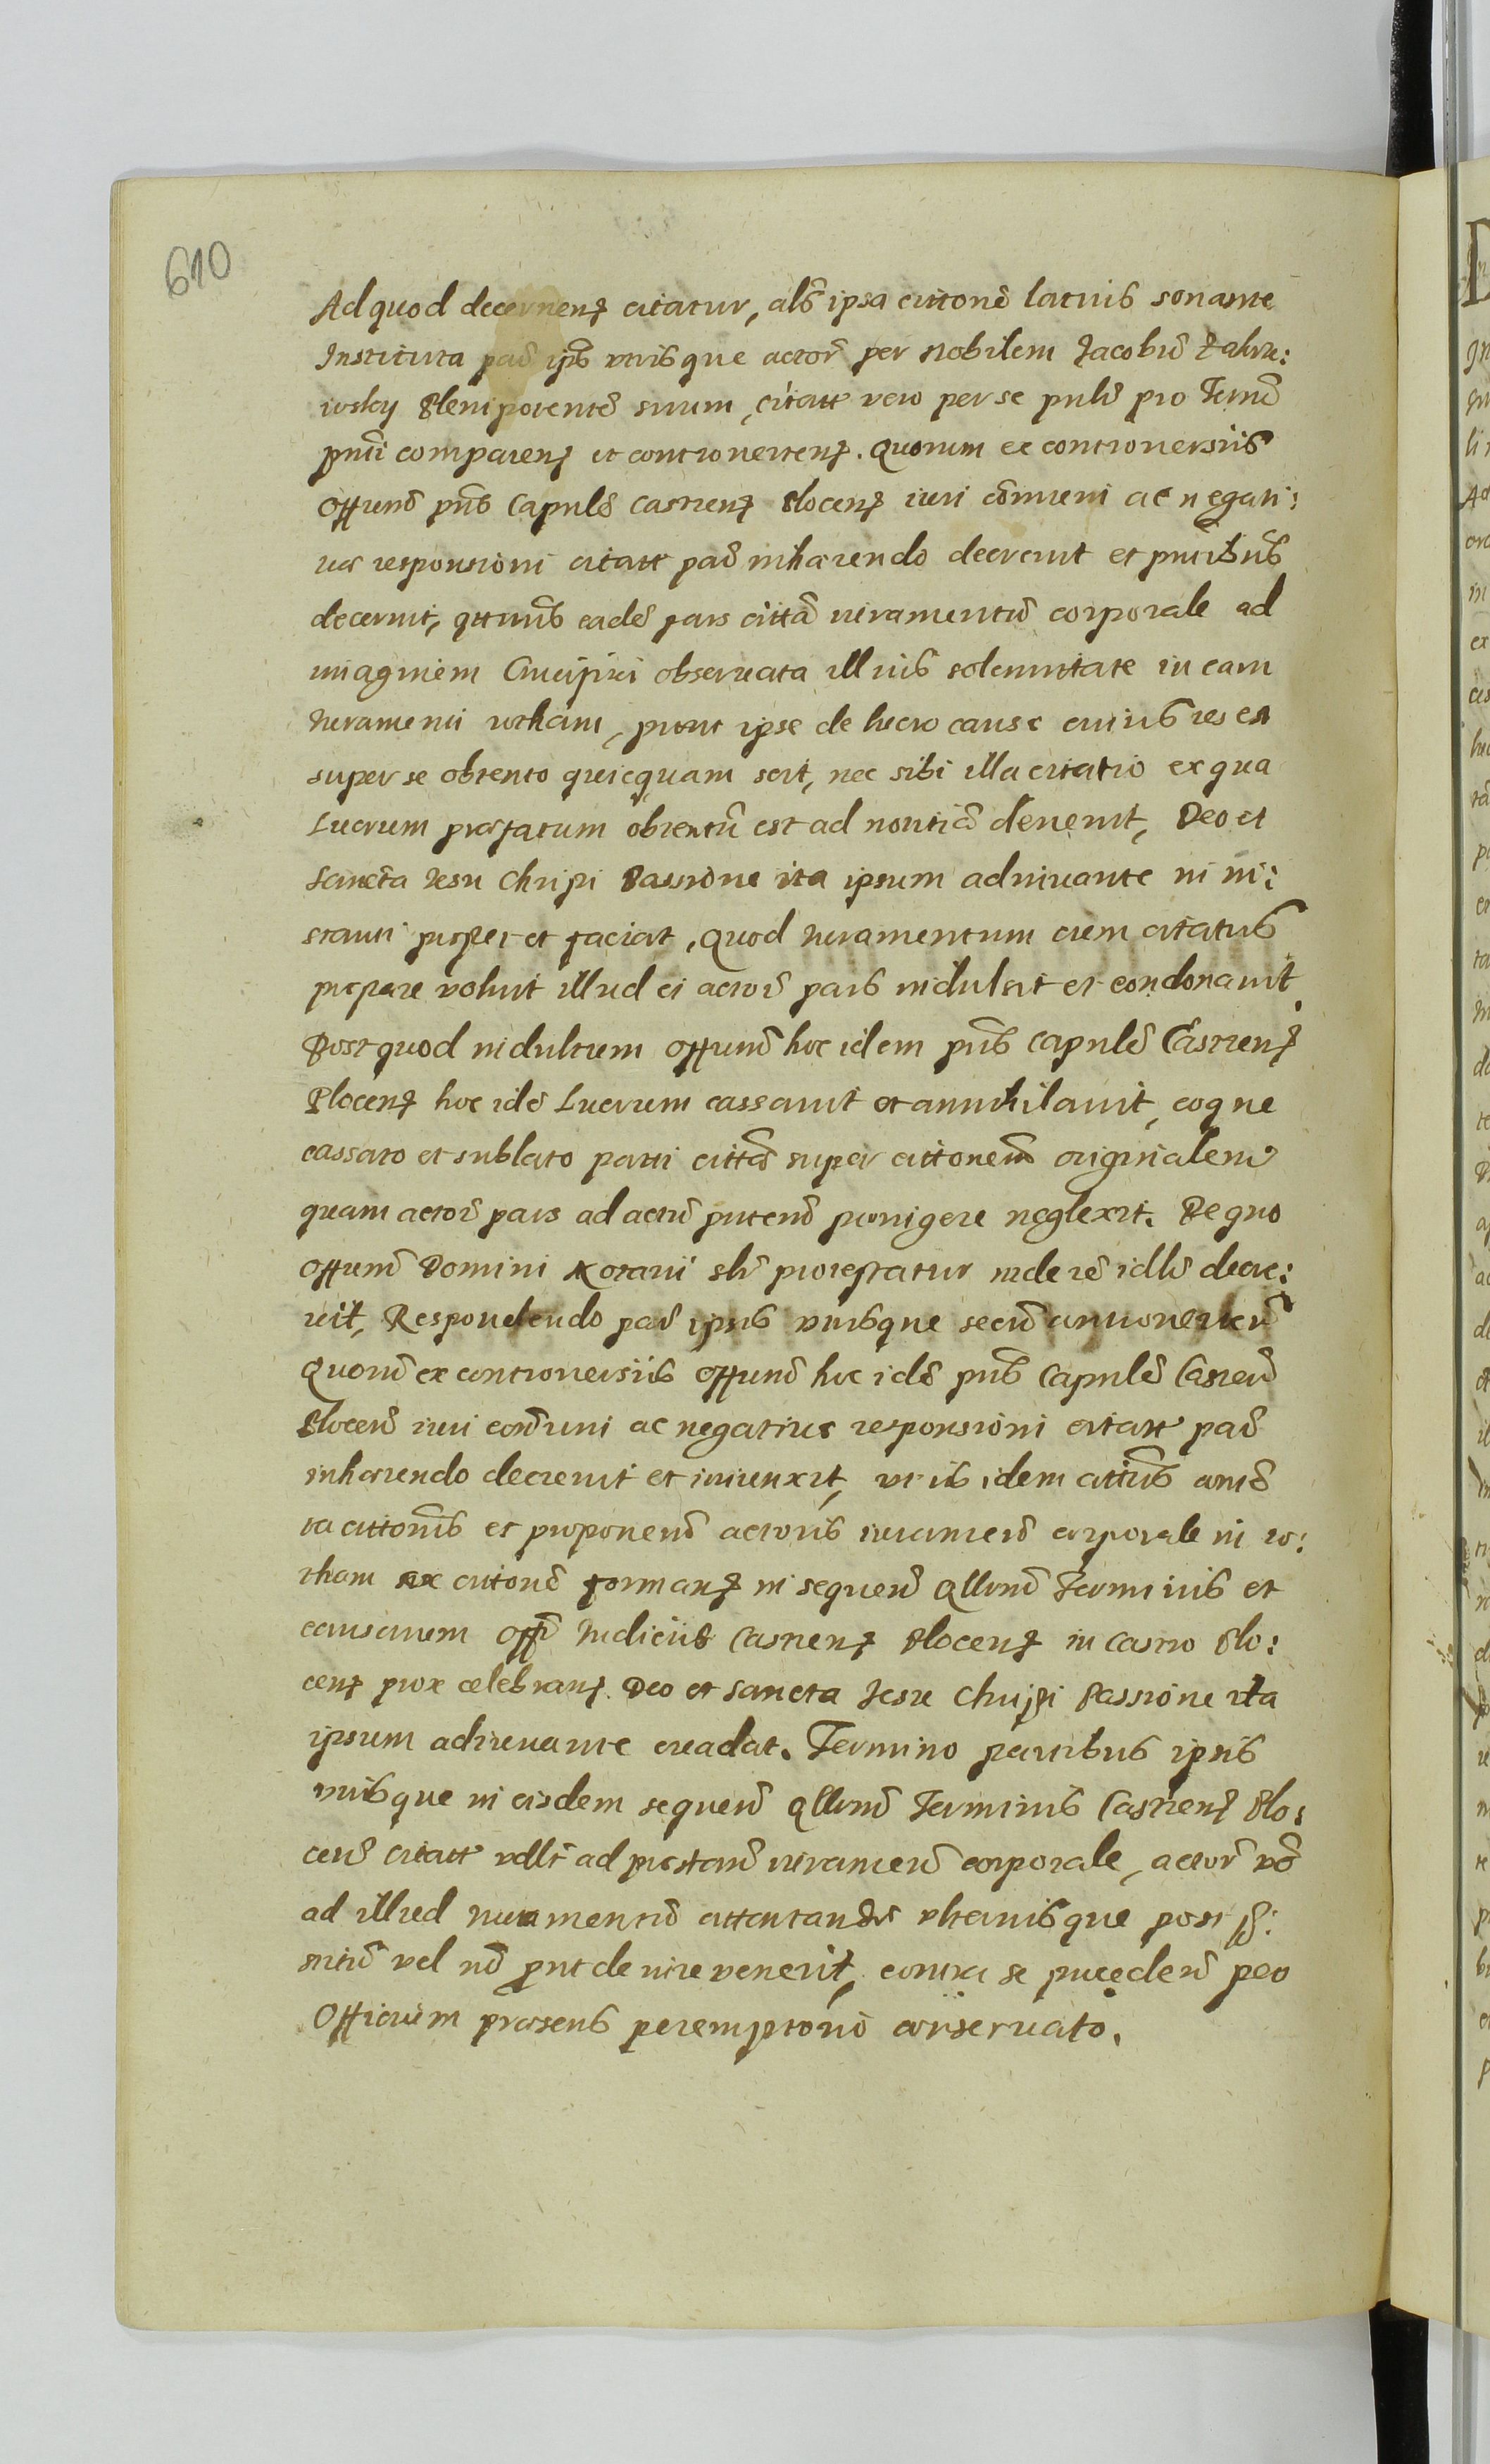 610
Ad quod decernenꝭ citatur, als ipsa cittone latius sonante
Instituta par ipīs utrisque actor per Nobilem Jacobū Zakrze:
wsky Plenipotentē suum, citatt vero per se pnlr pro Termō
pnti comparenꝭ et controuertenꝭ. Quorum ex controuersiis
Offium pns Capnle Castrenꝭ Plocenꝭ iuri comuni ac negati:
uæ responsioni citatt par inhærendo decreuit et partibus
decernit, qttnus eade pars citta iuramentū corporale ad
imaginem Crucifixi obseruata illius solennitate in eam
Iuramenti rotham, prout ipse de lucro causæ cuius res est
super se obtento quicquam scit, nec sibi illa citatio ex qua
Lucrum præfatum obtentū est ad notitiā deuenit, Deo et
Sancta Iesu Christi Passione ita ipsum adiuuante in in:
stanti præstet et faciat, Quod Iuramentum cum citatus
præstare voluit illud ei actor pars indulsit et condonauit.
Post quod indultum Offium hoc idem pns Capnle Castrenꝭ
Plocenꝭ hoc idē Lucrum cassauit et annihilauit, eoque
cassato et sublato parti cittā super cittonem originalem
quam actor pars ad actū præsend porrigere neglexit. De quo
Offium Domini Notarii slr protestatur inde re idle decre:
uit, Respondendo par ipsis utrisque secū controuerten
Quorū ex controuersiis Offium hoc idē pns Capnle Castren
Plocen iuri comuni ac negatiuæ responsioni citatt par
inhærendo decreuit et iniunxit, ut is idem cittus contē
ta cittonis et proponend actoris iuramen corporale in ro:
tham ex cittone formanꝭ in sequen qllrum Terminis et
causarum Offi Iudiciis Castrenꝭ Plocenꝭ in Castro Plo:
cenꝭ prox celebranꝭ. Deo et Sancta Iesu Christi Passione ita
ipsum adiuuante euadat. Termino partibus ipsis
utrisque in eisdem sequen qllrum Terminis Castrenꝭ Plo:
cen citatt vdlt ad præstan iuramen corporale, actor vo
ad illud iuramentū attentandū ulteriusque post
vel no put de iure venerit, contra se proceden per
Officium præsens peremptorio conseruato.